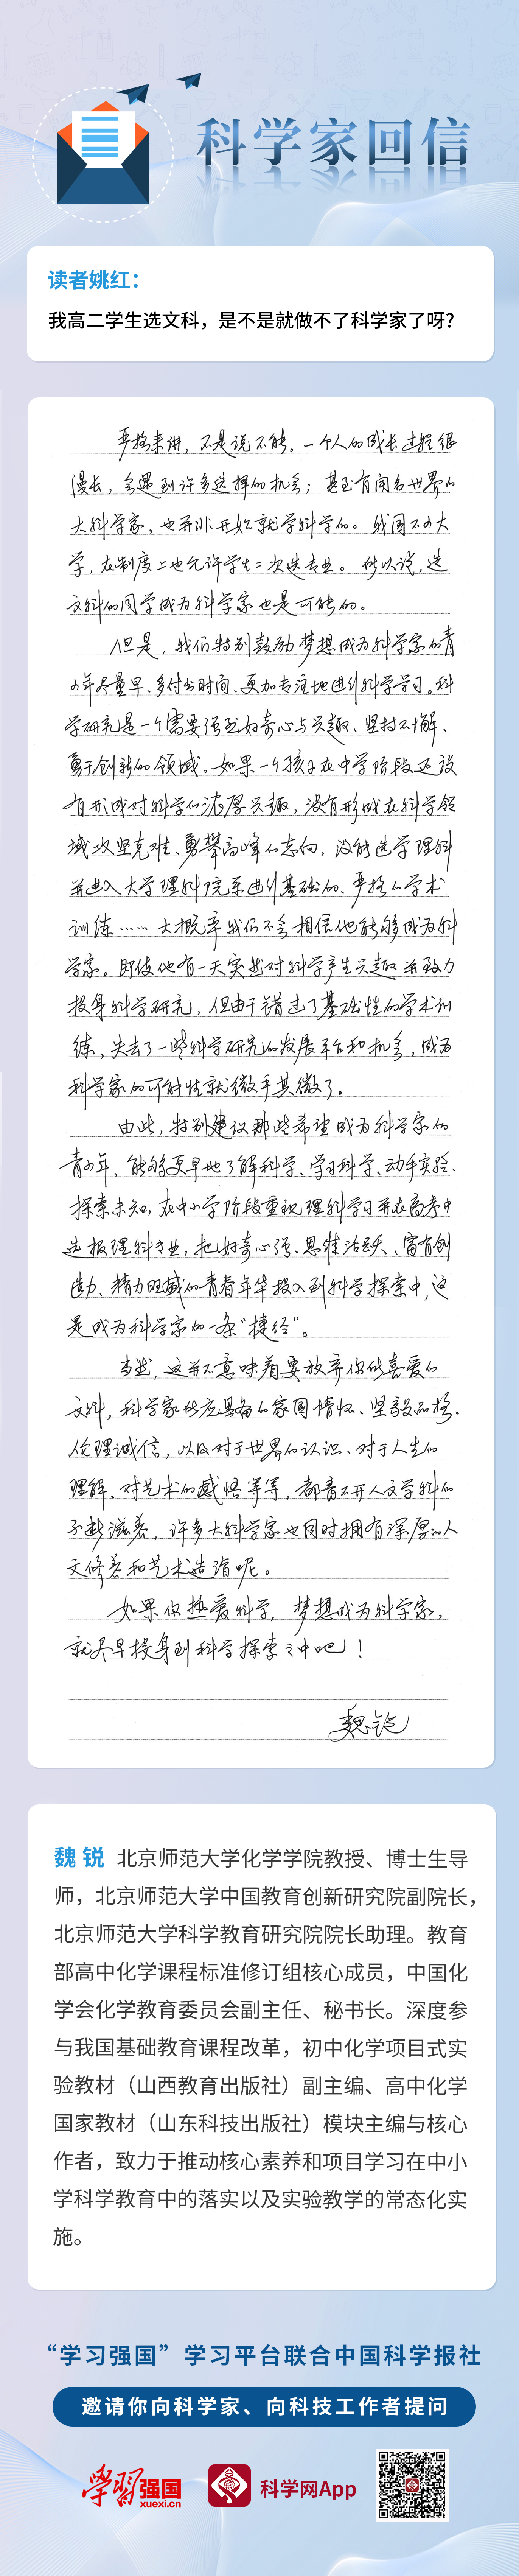 科学家回信
读者姚红：
我高二学生选文科，是不是就做不了科学家了呀?
严格来讲，不是说不能，一个人的成长过程很
漫长，会遇到许多选择的机会；甚至有闻名世界的
大科学家，也并非开始就学科学的。我国不少大
学，在制度上也允许学生二次选专业。所以说，选
文科的同学成为科学家也是可能的。
但是，我们特别鼓励梦想成为科学家的青
少年尽量早、多付出时间、更加专注地进行科学学习。科
学研究是一个需要强烈好奇心与兴趣、坚持不懈、
勇于创新的领域。如果一个孩子在中学阶段还没
有形成对科学的浓厚兴趣，没有形成在科学领
域攻坚克难、勇攀高峰的志向，没能选学理科
并进入大学理科院系进行基础的、严格的学术
训练……大概率我们不会相信他能够成为科
学家。即使他有一天突然对科学产生兴趣并致力
投身科学研究，但由于错过了基础性的学术训
练，失去了一些科学研究的发展平台和机会，成为
科学家的可能性就微乎其微了。
由此，特别建议那些希望成为科学家的
青少年，能够更早地了解科学、学习科学、动手实验、
探索未知，在中小学阶段重视理科学习并在高考中
选报理科专业，把好奇心强、思维活跃、富有创
造力、精力旺盛的青春年华投入到科学探索中，这
是成为科学家的一条“捷径”。
当然，这并不意味着要放弃你所喜爱的
文科，科学家所应具备的家国情怀、坚毅品格、
伦理诚信，以及对于世界的认识、对于人生的
理解、对艺术的感悟等等，都离不开人文学科的
不断滋养，许多大科学家也同时拥有深厚的人
文修养和艺术造诣呢。
如果你热爱科学，梦想成为科学家，
就尽早投身到科学探索之中吧！
魏锐
魏 锐 北京师范大学化学学院教授、博士生导
师，北京师范大学中国教育创新研究院副院长，
北京师范大学科学教育研究院院长助理。教育
部高中化学课程标准修订组核心成员，中国化
学会化学教育委员会副主任、秘书长。深度参
与我国基础教育课程改革，初中化学项目式实
验教材（山西教育出版社）副主编、高中化学
国家教材（山东科技出版社）模块主编与核心
作者，致力于推动核心素养和项目学习在中小
学科学教育中的落实以及实验教学的常态化实
施。
“学习强国”学习平台联合中国科学报社
邀请你向科学家、向科技工作者提问
学习强国
xuexi.cn
科学网App